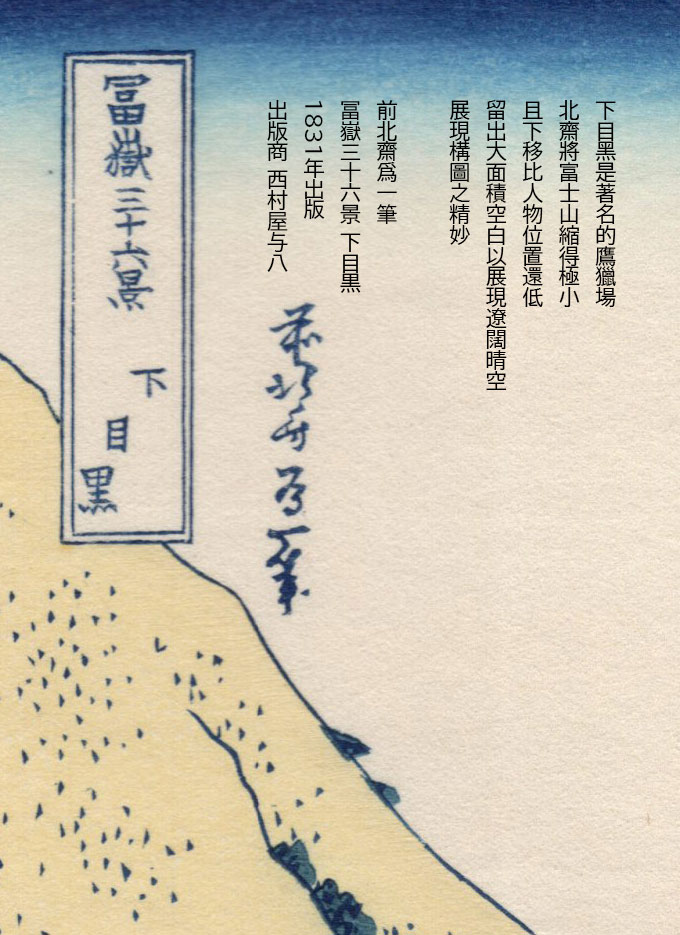 下目黑是著名的鷹獵場
北齋將富士山縮得極小
且下移比人物位置還低
留出大面積空白以展現遼闊晴空
展現構圖之精妙
前北齋爲一筆
冨嶽三十六景 下目黒
1831年出版
出版商 西村屋与八
前北斎为一筆
冨嶽三十六景
下目黒